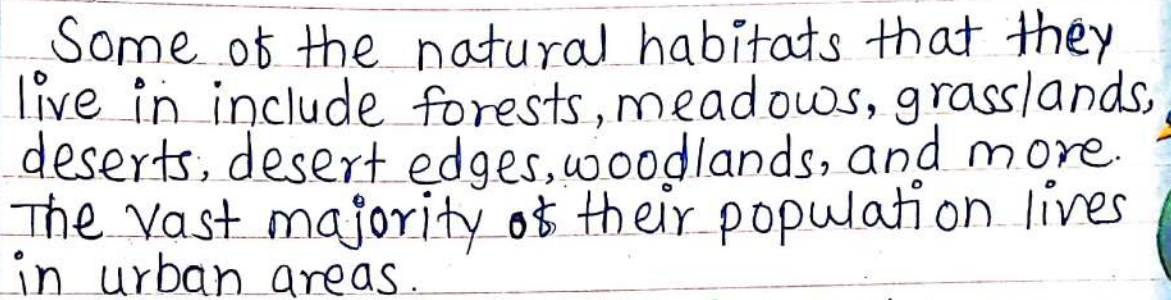 Some of the natural habitats that they
live in include forests, meadows, grasslands,
deserts, desert edges, woodlands, and more.
The vast majority of their population lives
in urban areas.